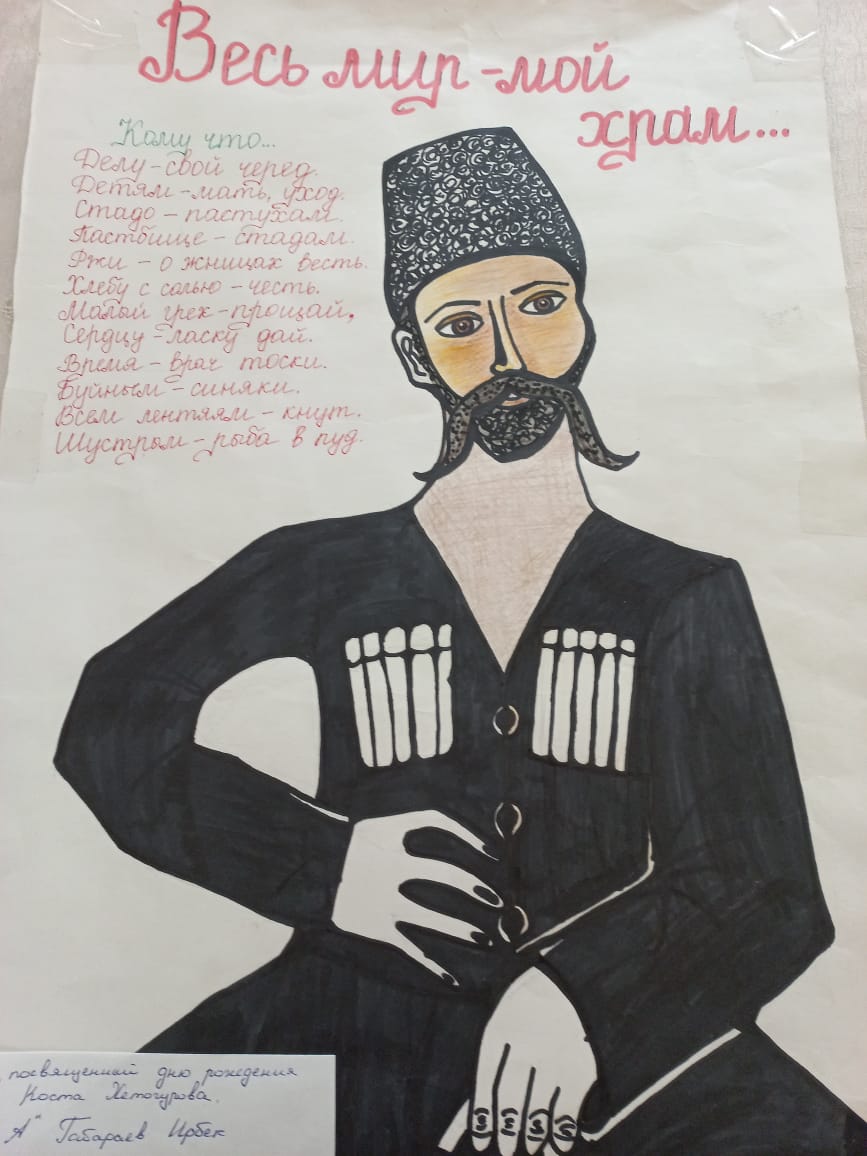 Весь мир - мой
храм...
Кому что...
Делу - свой черед.
Детям - мать, уход.
Стадо - пастухам.
Пастбище - стадам.
Ржи - о жницах весть.
Хлебу с солью - честь.
Малый грех - прощай,
Сердцу - ласку дай.
Время - врач тоски.
Буйным - синяки.
Всем лентяям - кнут.
Шустрым - рыба в пуд.
посвященный дню рождения
Коста Хетагурова.
А" Габараев Ирбек